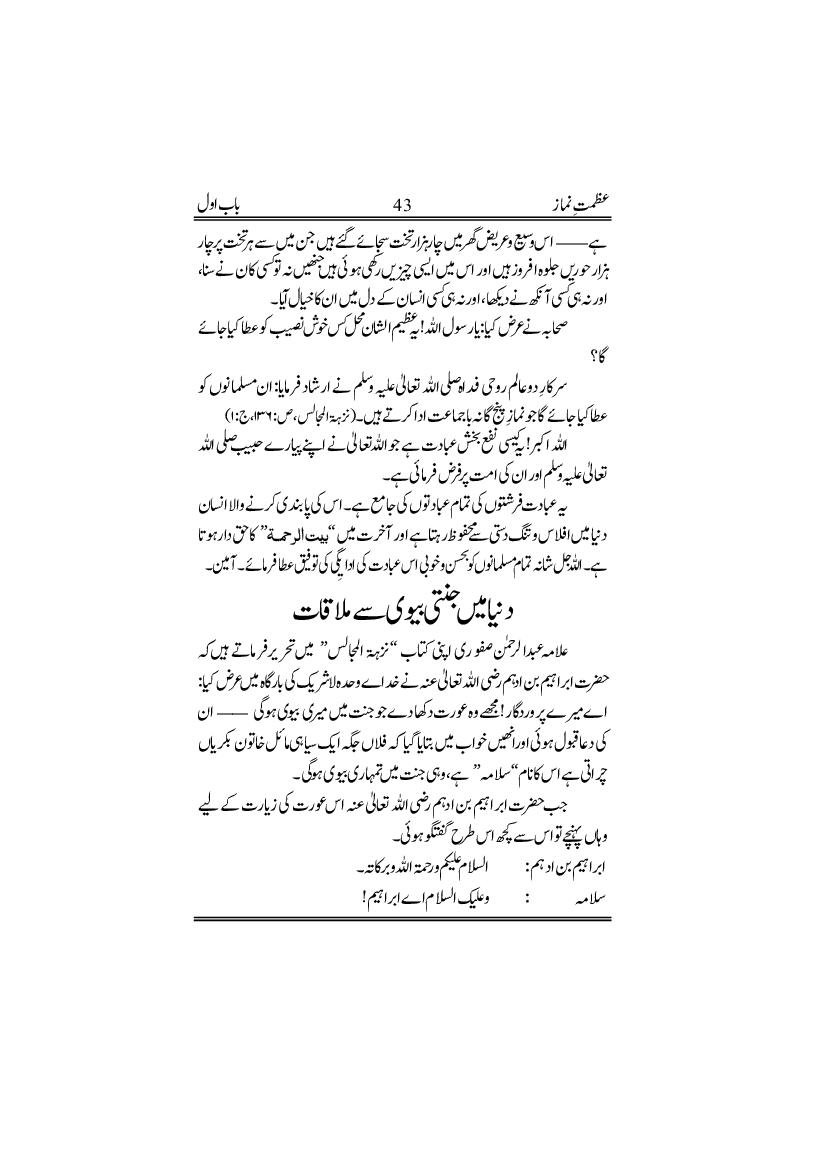 عظمتِ نماز 43 باب اول
ہے —— اس وسیع و عریض گھر میں چار ہزار تخت سجائے گئے ہیں جن میں سے ہر تخت پر چار
ہزار حوریں جلوہ افروز ہیں اور اس میں ایسی چیزیں رکھی ہوئی ہیں جنھیں نہ تو کسی کان نے سنا،
اور نہ ہی کسی آنکھ نے دیکھا، اور نہ ہی کسی انسان کے دل میں ان کا خیال آیا۔
صحابہ نے عرض کیا: یا رسول اللہ! یہ عظیم الشان محل کس خوش نصیب کو عطا کیا جائے
گا؟
سرکارِ دو عالم روحی فداہ صلی اللہ تعالیٰ علیہ وسلم نے ارشاد فرمایا: ان مسلمانوں کو
عطا کیا جائے گا جو نمازِ پنج گانہ باجماعت ادا کرتے ہیں۔ (نزہۃ المجالس، ص:۱۳۶، ج:۱)
اللہ اکبر! یہ کیسی نفع بخش عبادت ہے جو اللہ تعالیٰ نے اپنے پیارے حبیب صلی اللہ
تعالیٰ علیہ وسلم اور ان کی امت پر فرض فرمائی ہے۔
یہ عبادت فرشتوں کی تمام عبادتوں کی جامع ہے۔ اس کی پابندی کرنے والا انسان
دنیا میں افلاس و تنگ دستی سے محفوظ رہتا ہے اور آخرت میں “بیت الرحمۃ” کا حق دار ہوتا
ہے۔ اللہ جل شانہ تمام مسلمانوں کو بحسن و خوبی اس عبادت کی ادایگی کی توفیق عطا فرمائے۔ آمین۔
دنیا میں جنتی بیوی سے ملاقات
علامہ عبد الرحمٰن صفوری اپنی کتاب “نزہۃ المجالس” میں تحریر فرماتے ہیں کہ
حضرت ابراہیم بن ادہم رضی اللہ تعالیٰ عنہ نے خداے وحدہ لاشریک کی بارگاہ میں عرض کیا:
اے میرے پروردگار! مجھے وہ عورت دکھا دے جو جنت میں میری بیوی ہوگی —— ان
کی دعا قبول ہوئی اور انھیں خواب میں بتایا گیا کہ فلاں جگہ ایک سیاہی مائل خاتون بکریاں
چراتی ہے اس کا نام “سلامہ” ہے، وہی جنت میں تمہاری بیوی ہوگی۔
جب حضرت ابراہیم بن ادہم رضی اللہ تعالیٰ عنہ اس عورت کی زیارت کے لیے
وہاں پہنچے تو اس سے کچھ اس طرح گفتگو ہوئی۔
ابراہیم بن ادہم: السلام علیکم ورحمۃ اللہ وبرکاتہ۔
سلامہ : وعلیک السلام اے ابراہیم!